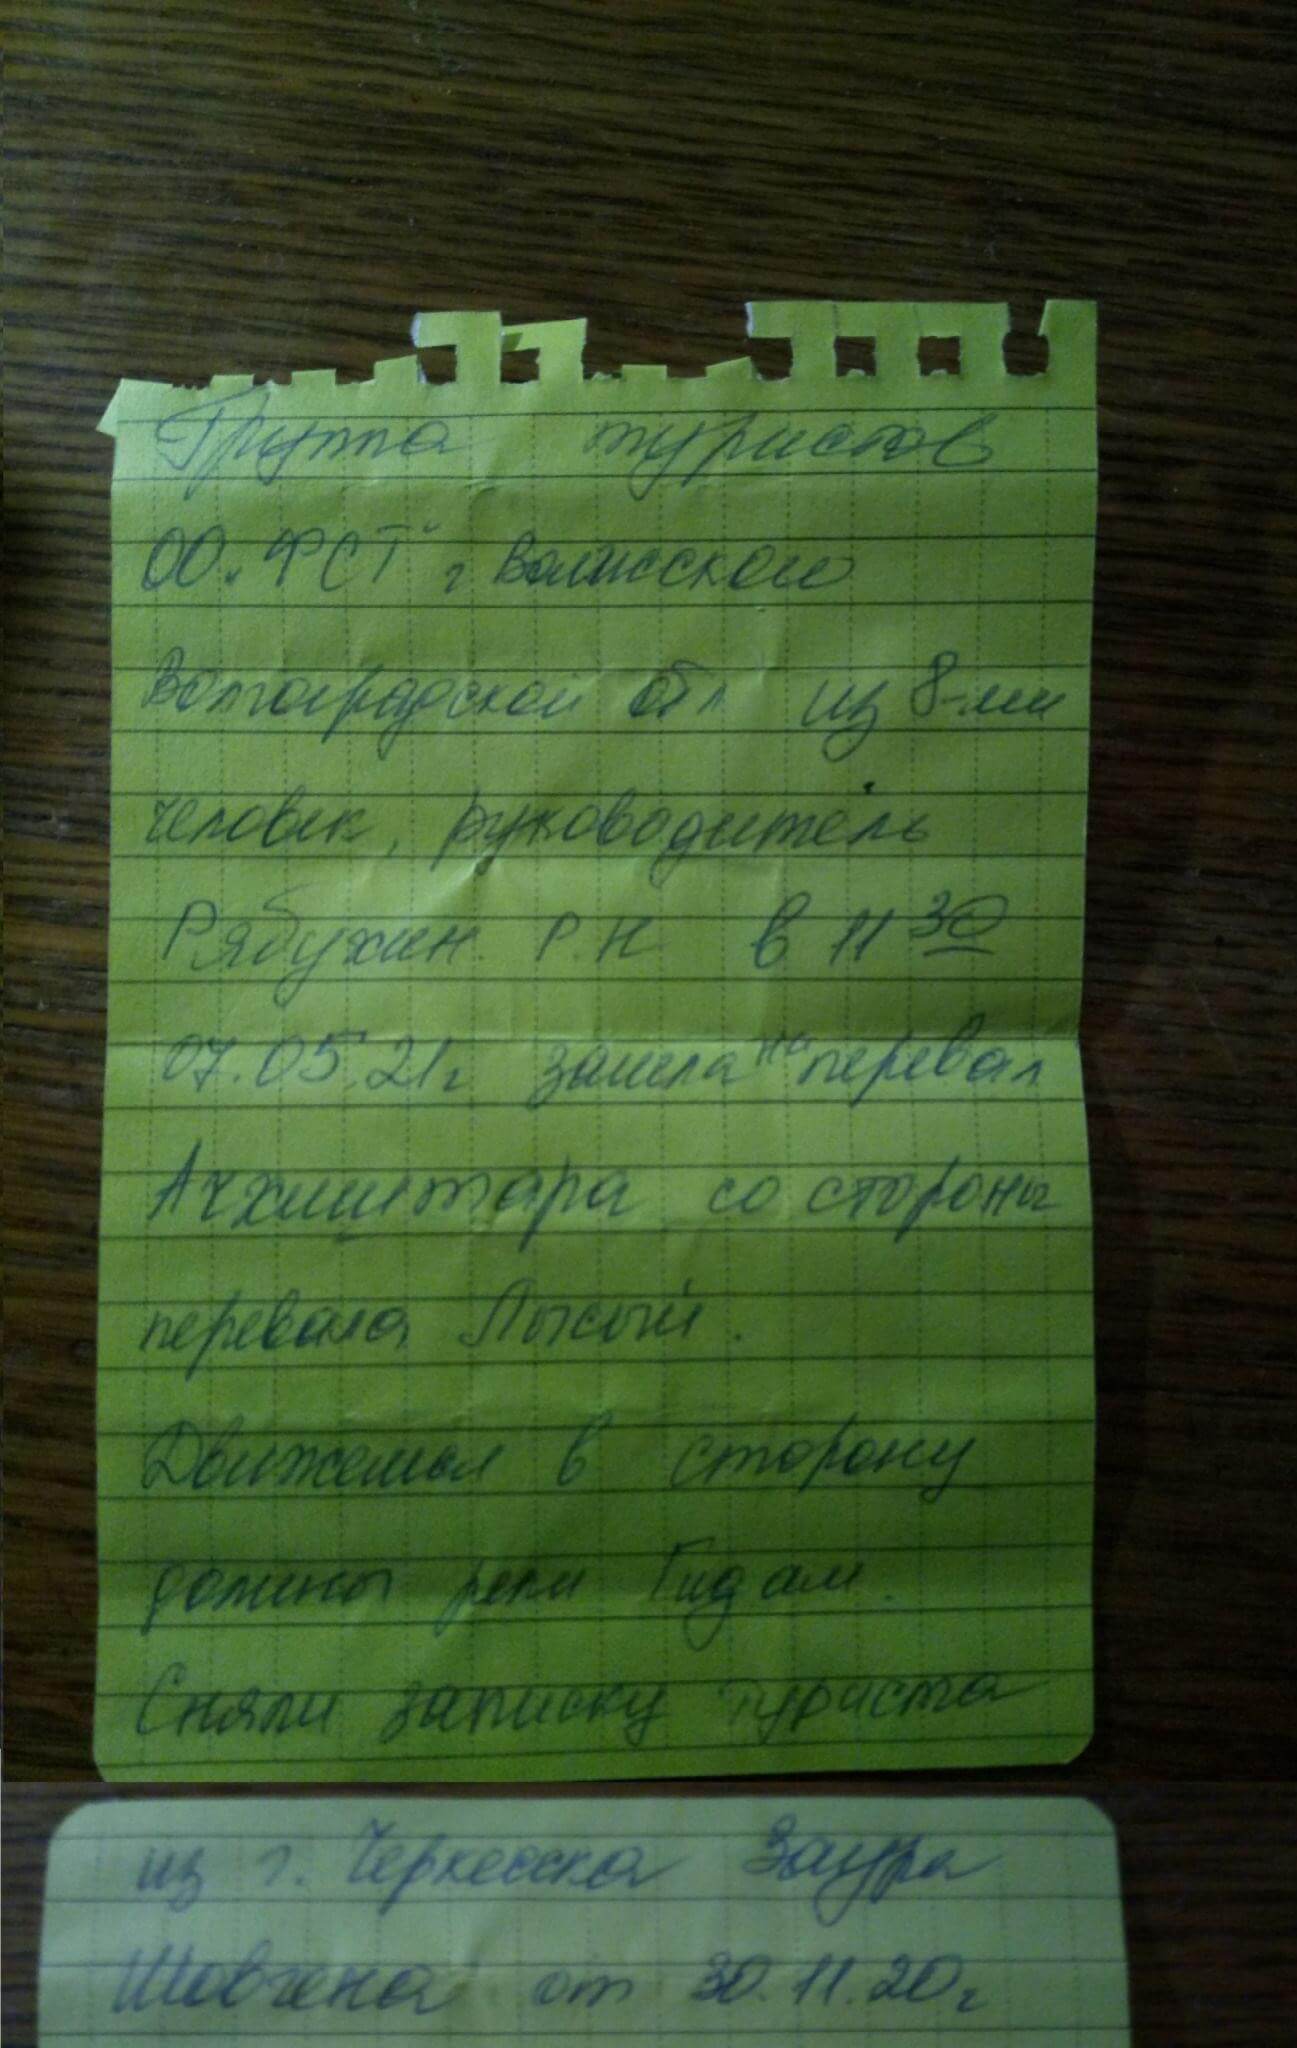 Группа туристов
ОО "ФСТ" г Волжского
Волгоградской обл из 8-ми
человек, руководитель
Рябухин Р.Н в 11 30
07.05.21г зашла на перевал
Ачхишштара со стороны
перевала Лысый.
Движемся в сторону
долины реки Гидам.
Сняли записку туриста
из г. Черкесска Заура
Шовгена от 30.11.20г